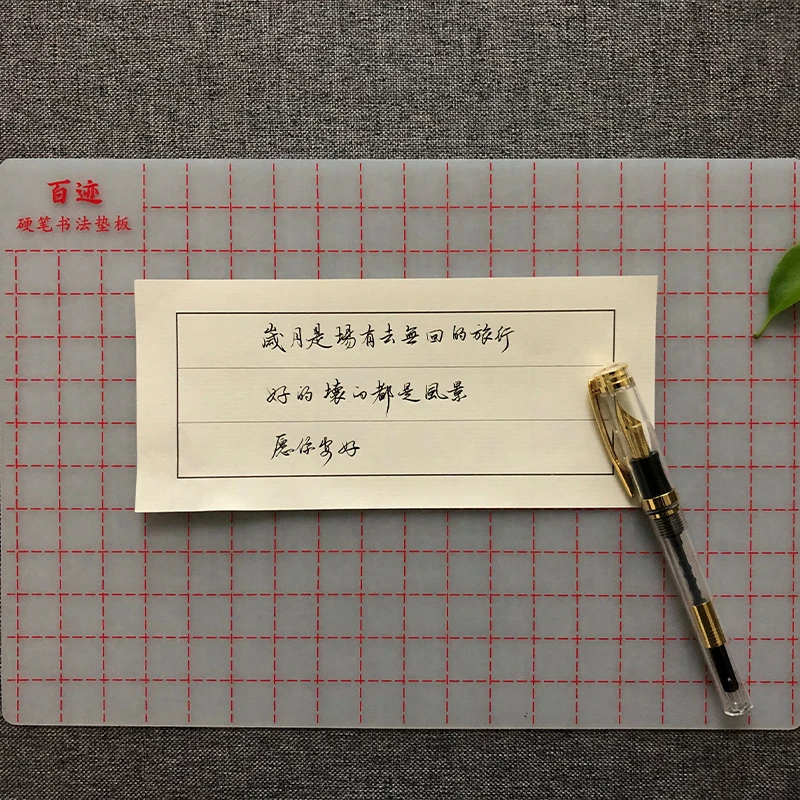 百迹
硬笔书法垫板
歲月是場有去無回的旅行
好的壞的都是風景
愿你安好